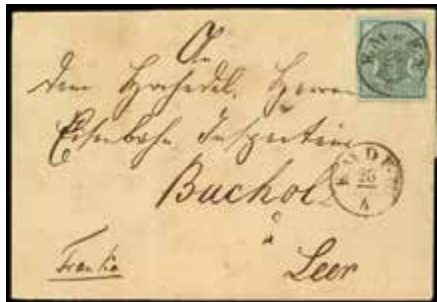 An
dem Hochedel. Herrn
Eisenbahn Inspector
Buchol
à
Leer
Franko
EMDEN
EMDEN
25
4